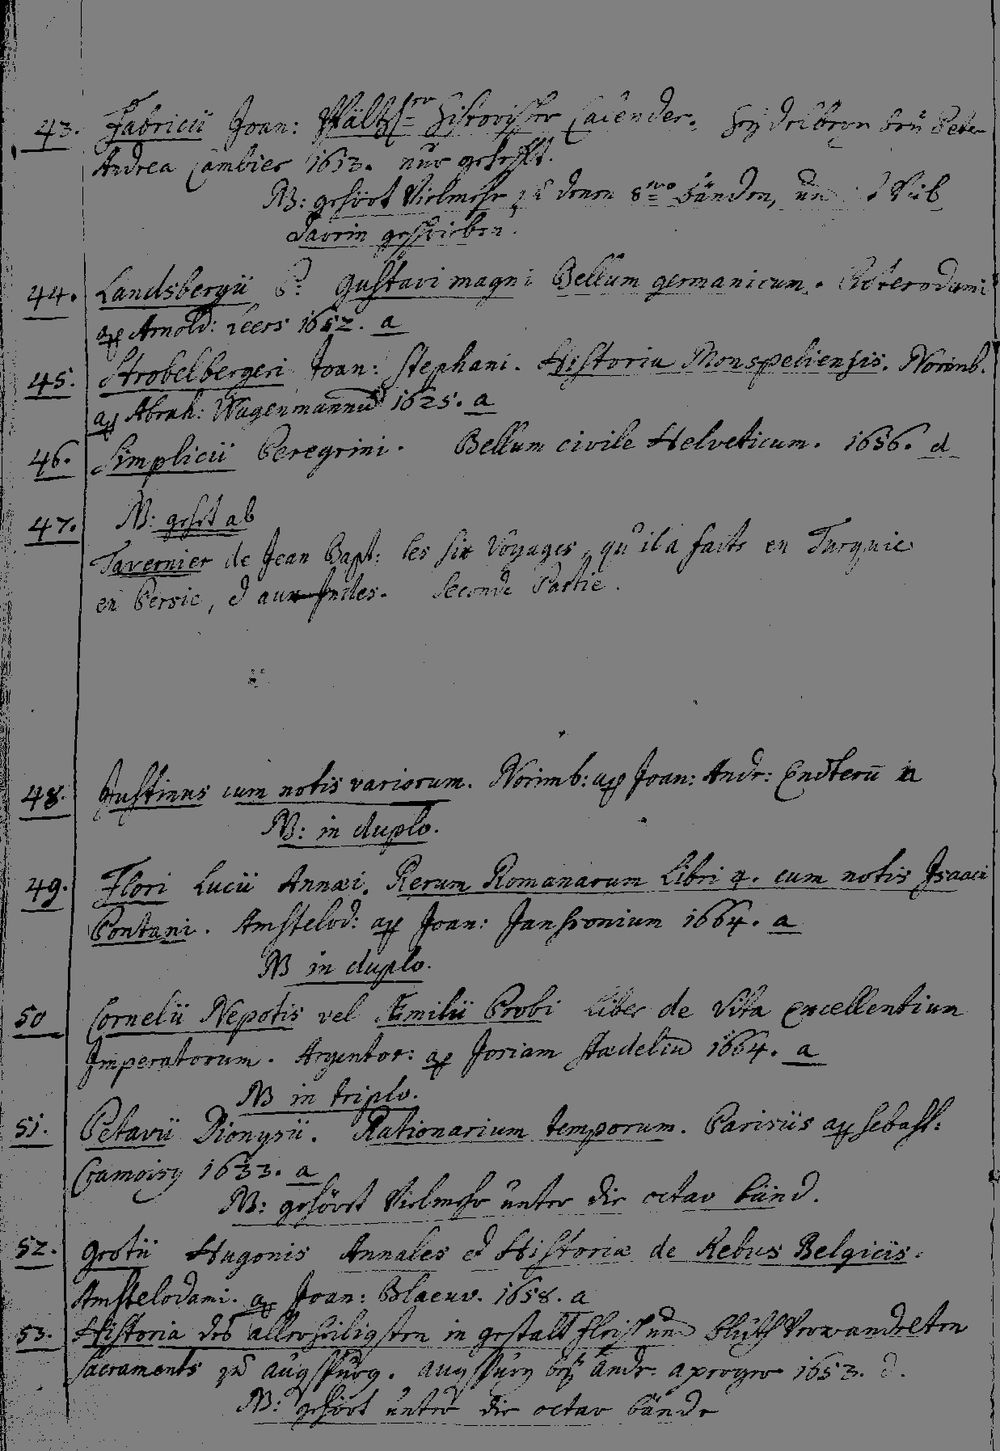 43. Fabricii Joan: Pfältzisr Historischer Calender. Heydelberg bey Peter
Andrea Cambier 1613. nur gehefft.
NB: gehört Vielmehr zu denen 8vo bänden, und
darein geschrieben.
44. Landsbergii P. Gustavi magni Bellum germanicum. Roterodami
ap Arnold: Leers 1652. a
45. Strobelbergeri Joan: Stephani. Historia Monspeliensis. Norimb.
ap Abrah: Wagenmannū 1625. a
46. Simplicii Peregrini. Bellum civile Helveticum. 1656. d
47. NB: geht ab
Tavernier de Jean Bapt: les six Voyages, qu'il a faits en Turquie
en Persie, et aux Indes. Seconde Partie.
48. Justinus cum notis variorum. Norimb: ap Joan: Andr: Endterū n
NB: in duplo.
49. Flori Lucii Annæi. Rerum Romanarum Libri 4. cum notis Isaaci
Pontani. Amstelod: ap Joan: Janssonium 1664. a
NB in duplo.
50 Cornelii Nepotis vel Æmilii Probi Liber de Vita Excellentium
Imperatorum. Argentor: ap Josiam Stædeliū 1664. a
NB in triplo.
51. Petavii Dionysii. Rationarium temporum. Parisiis ap Sebast:
Cramoisy 1633. a
NB: gehört Vielmehr unter die octav bänd.
52. Grotii Hugonis Annales et Historiæ de Rebus Belgicis.
Amstelodami. ap Joan: Blaeuv. 1658. a
53. Historia des allerheiligsten in gestalt fleisch und bluth Verwandelten
Sacraments zu augspurg. augspurg bey andr. aperger 1653. d.
NB: gehört unter die octav bände